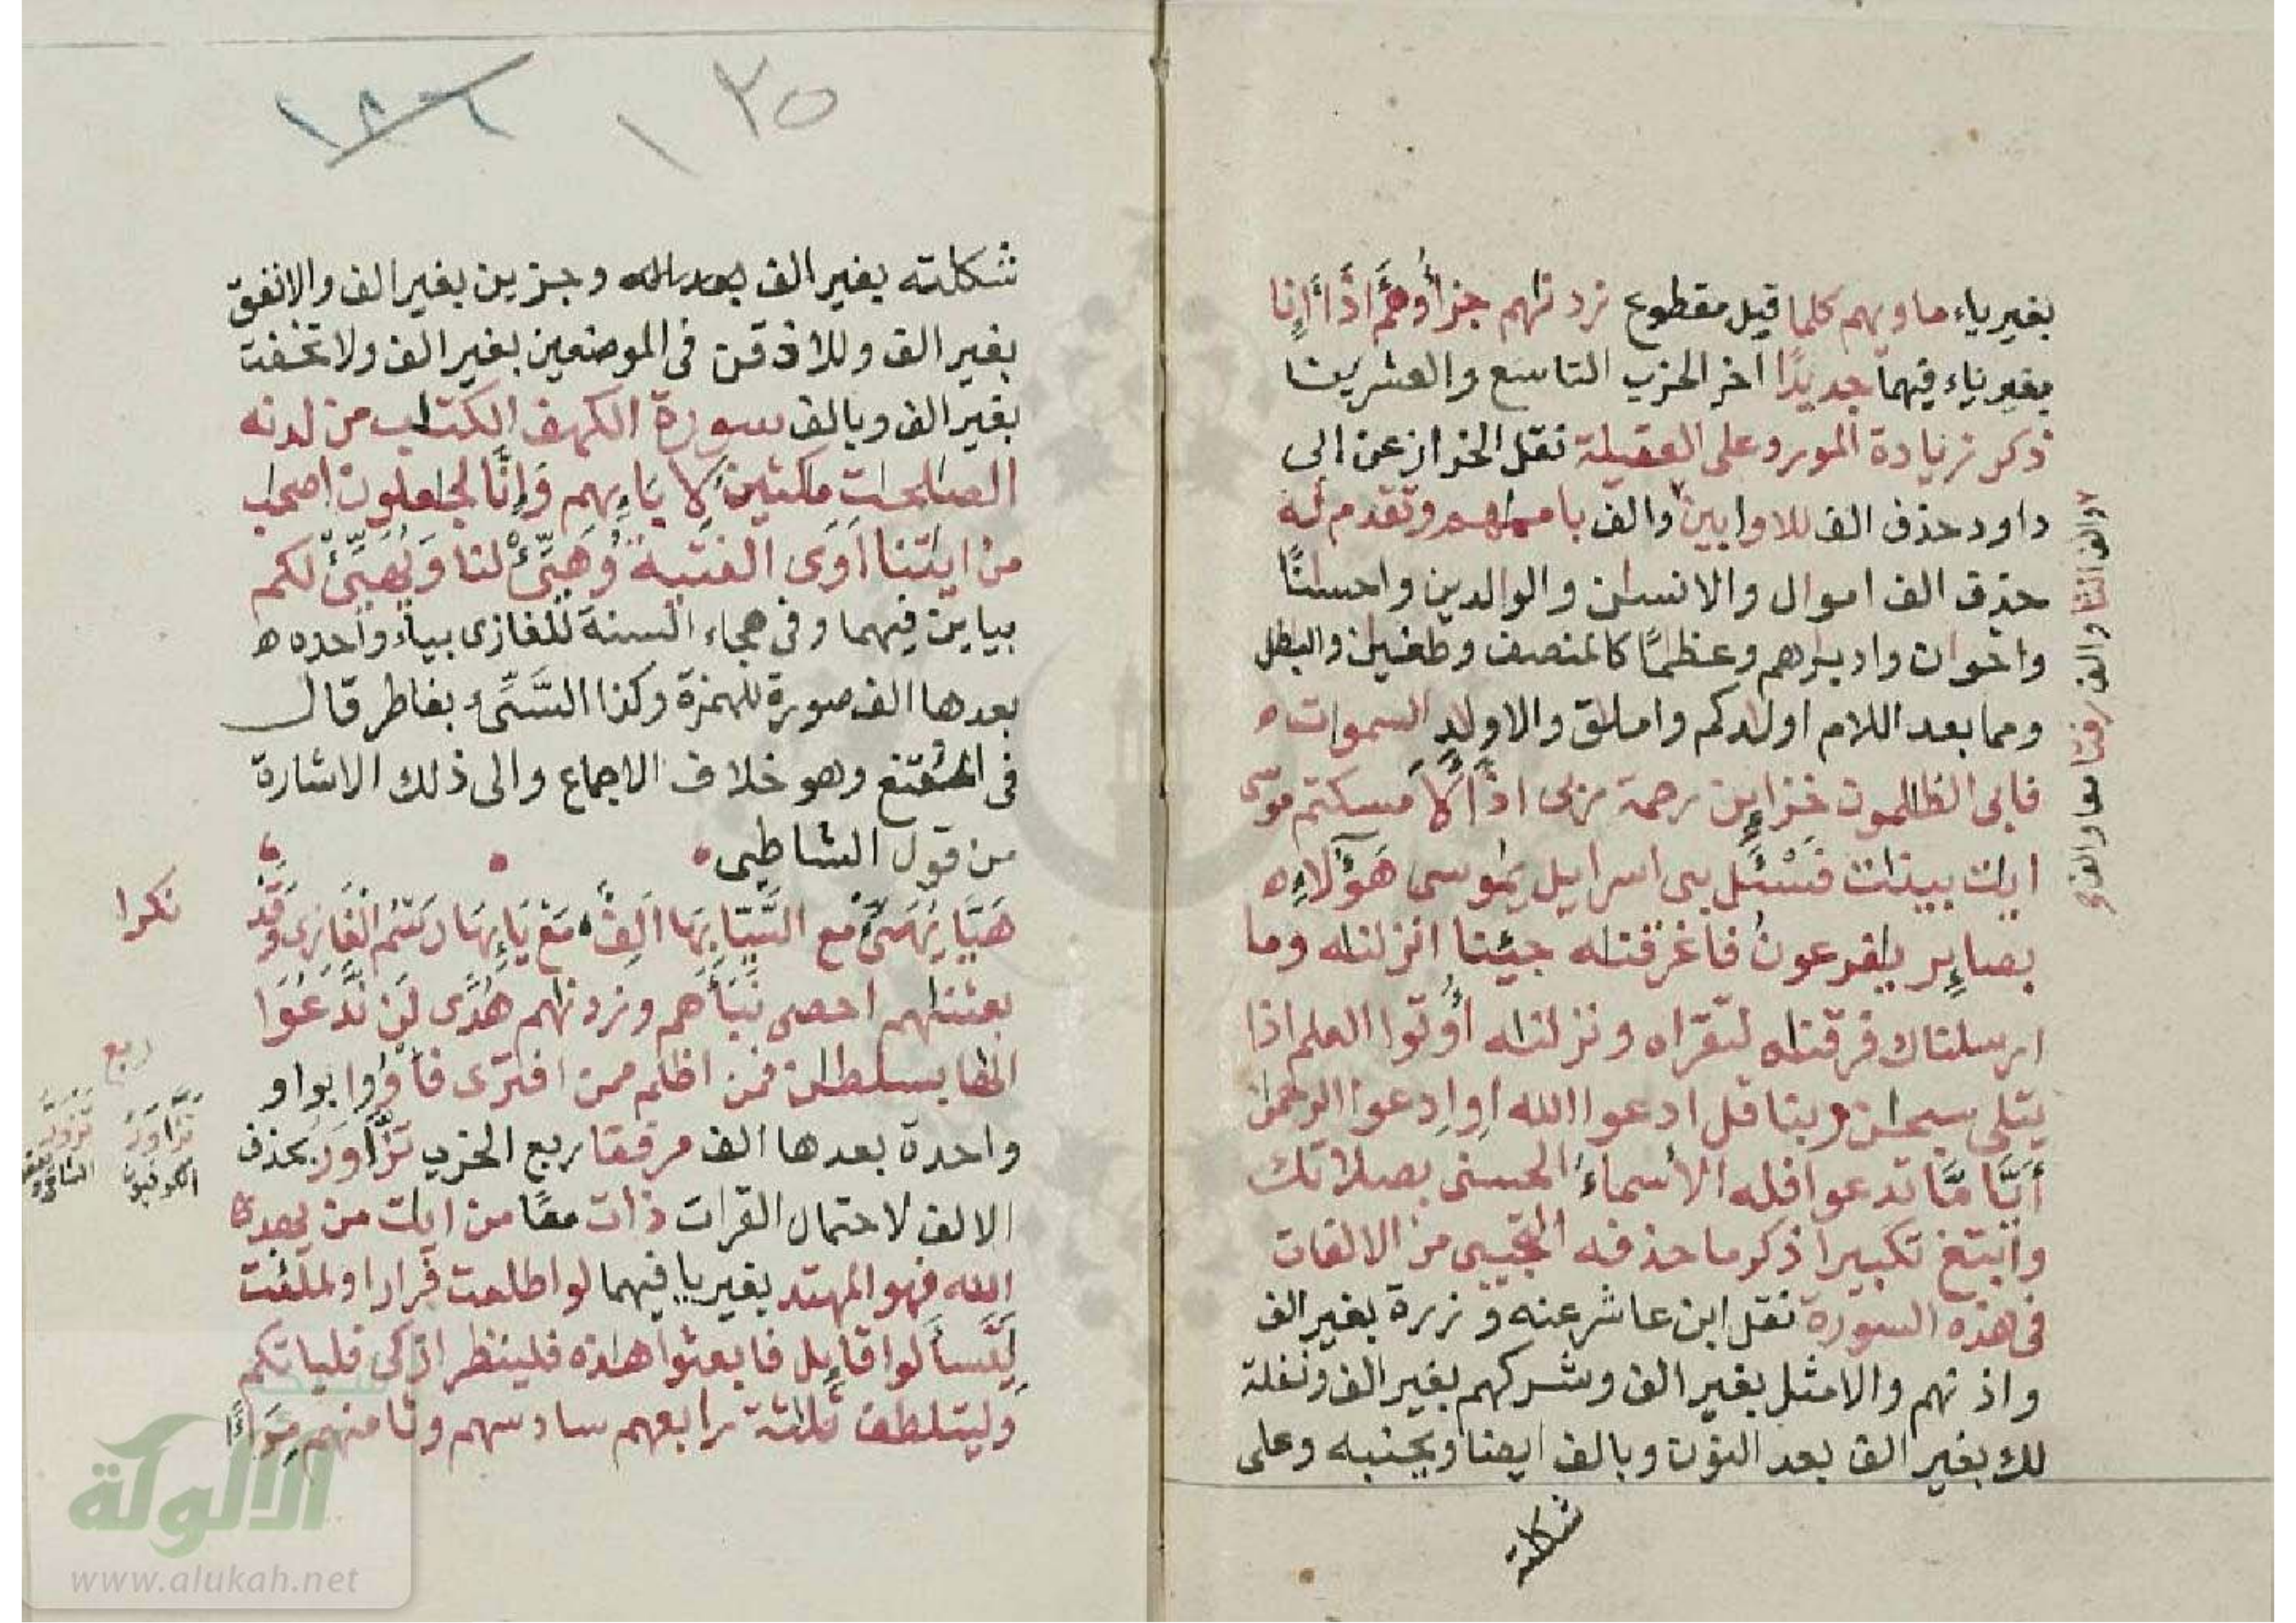 بغير ياء ماويهم كلما قيل مقطوع زدنهم جزاؤهم أءذا أءنا
بغير ياء فيهما جديدًا اخر الحزب التاسع والعشرين
ذكر زيادة المورد على العقيلة نقل الخراز عن ابى
داود حذف الف للاوابين والف وتقدم له
حذف الف اموال والانسٰن والوالدين واحسٰنًا
واخوان وادبٰرهم وعظٰمًا كالمنصف وطغيٰن والبٰطل
ومما بعد اللام اولٰدكم واملٰق والاولٰد السموات
فابى الظالمون خزاين رحمة ربى اذًا لامسكتم موسى
ايٰت بينٰت فسْـَٔل بنى اسرايل يٰموسى هؤلاء
بصاير يٰفرعون فاغرقنٰه جيئنا انزلنٰه وما
ارسلناك فرقنٰه لتقراه ونزلنٰه أوتوا العلم اذا
يتلى سبحٰن ربنا قل ادعوا الله اوِ ادعوا الرحمٰن
أيًّا مَّا تدعوا فله الأسماءُ الحسنى بصلاتك
وابتغ تكبيرا ذكر ما حذفه التجيبى من الالفات
فى هذه السورة نقل ابن عاشر عنه وزرة بغير الف
واذنهم والامثل بغير الف وشركهم بغير الف ونفلة
لك بغير الف بعد النون وبالف ايضا وبجنبه وعلى
شكلته
والف رفتا معا والف
١٣٥
١٨٦
شكلته بغير الف بعد وجزين بغير الف والانفق
بغير الف وللاذقن فى الموضعين بغير الف ولا تخفت
بغير الف وبالف سورة الكهف الكتٰب من لدنه
الصلحٰت مٰكثين لابَاءِيهم وإنَّا لجٰعلون اصحٰب
من ايٰتنا أوَى الفتية وَهَيِّئْ لنا وَيُهَيِّئْ لكم
بيايين فيهما وفى هجاء السنة للغازى بياء واحده
بعدها الف صورة للهمزة وكذا السَّيِّئ بفاطر قال
فى المقنع وهو خلاف الاجماع والى ذلك الاشارة
من قول الشاطبى
هَيَّا يُهَيَّئ مع السَّيِّا بِهَا أَلِفٌ مَعْ يَائِهَا رَسَمَ الْغَازِى وَقَد
نكرا
بعثنٰهم احصى نَبَأَهم وزدنٰهم هُدًى لَن نَّدعُوَا
الها بسلطٰن فمن اظلم ممن افترى فأوُوا بواو
واحدة بعدها الف مرفقا ربع الحزب تَزَّاوَرُ بحذف
الالف لاحتمال القرات ذات معًا من ايٰت من يهد
الله فهو المهتد بغير يا فيهما لو اطلعت فرارا ولملئت
لِيَتَسَألوا قَايل فابعثوا هٰذه فلينظر ازكى فلياتكم
وليتلطف ثلٰثة رابعهم سادسهم وثامنهم مِرَاءً
ربع
تزاور
الكوفيون
الالوكة
www.alukah.net